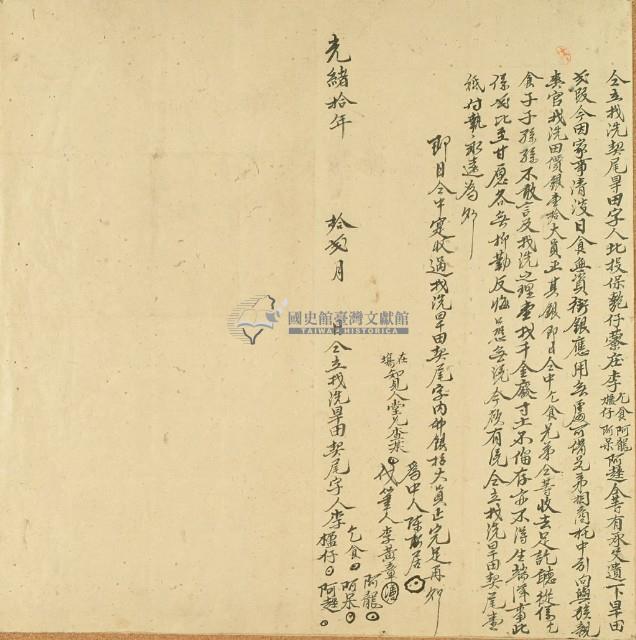 仝立找洗契尾旱田字人北投保藔仔藔庄李乞食 阿龍 阿趕仝等有承父遺下旱田
阪今因家事清淡日食無資銀應用無處可借兄弟相商托中引向與族親
官找洗田價銀拾大員正其銀即日仝中乞食兄弟仝等收去足訖聽從
食子子孫孫不敢言及找洗之理千金廢寸土不留存亦不得生端滋事此
係比至甘愿各無抑勒反悔恐無憑今欲有憑仝立找洗旱田契尾壹
紙付執永遠為炤
即日仝中實收過找洗旱田契尾字內佛銀拾大員正完足再炤
為中人陳
在場知見人堂兄
代筆人李
光緒拾年 拾月 日仝立找洗旱田契尾字人李乞食 阿龍 阿呆 阿趕
國史館臺灣文獻館
TAIWAN HISTORICA